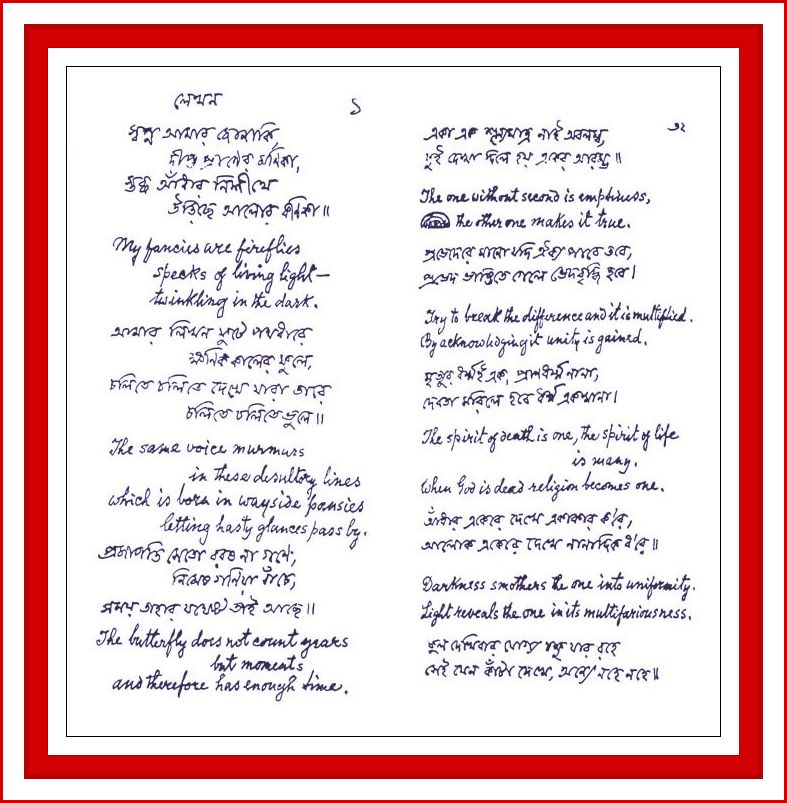 লেখন
১
স্বপ্ন আমার জোনাকি
দীপ্ত প্রাণের মণিকা,
স্তব্ধ আঁধার নিশীথে
উড়িছে আলোর কণিকা॥
My fancies are fireflies
specks of living light—
twinkling in the dark.
আমার লিখন ফুটে পথধারে
ক্ষণিক কালের ফুলে,
চলিতে চলিতে দেখে যারা তারে
চলিতে চলিতে ভুলে॥
The same voice murmurs
in these desultory lines
which is born in wayside pansies
letting hasty glances pass by.
প্রজাপতি সেতো বরষ না গণে,
নিমেষ গণিয়া বাঁচে,
সময় তাহার যথেষ্ট তাই আছে॥
The butterfly does not count years
but moments
and therefore has enough time.
৩২
একা এক শূন্যমাত্র নাই অবলম্ব,
দুই দেখা দিলে হয় একের আরম্ভ॥
The one without second is emptiness,
the other one makes it true.
প্রভেদেরে মানো যদি ঐক্য পাবে তবে,
প্রভেদ ভাঙিতে গেলে ভেদবৃদ্ধি হবে।
Try to break the difference and it is multiplied.
By acknowledging it unity is gained.
মৃত্যুর ধর্ম্মই এক, প্রাণধর্ম্ম নানা,
দেবতা মরিলে হবে ধর্ম্ম একখানা।
The spirit of death is one, the spirit of life
is many.
When God is dead religion becomes one.
আঁধার একেরে দেখে একাকার ক'রে,
আলোক একেরে দেখে নানাদিক ধ'রে॥
Darkness smothers the one into uniformity.
Light reveals the one in its multifariousness.
ফুল দেখিবার যোগ্য চক্ষু যার রহে
সেই যেন কাঁটা দেখে, অন্যে নহে নহে॥